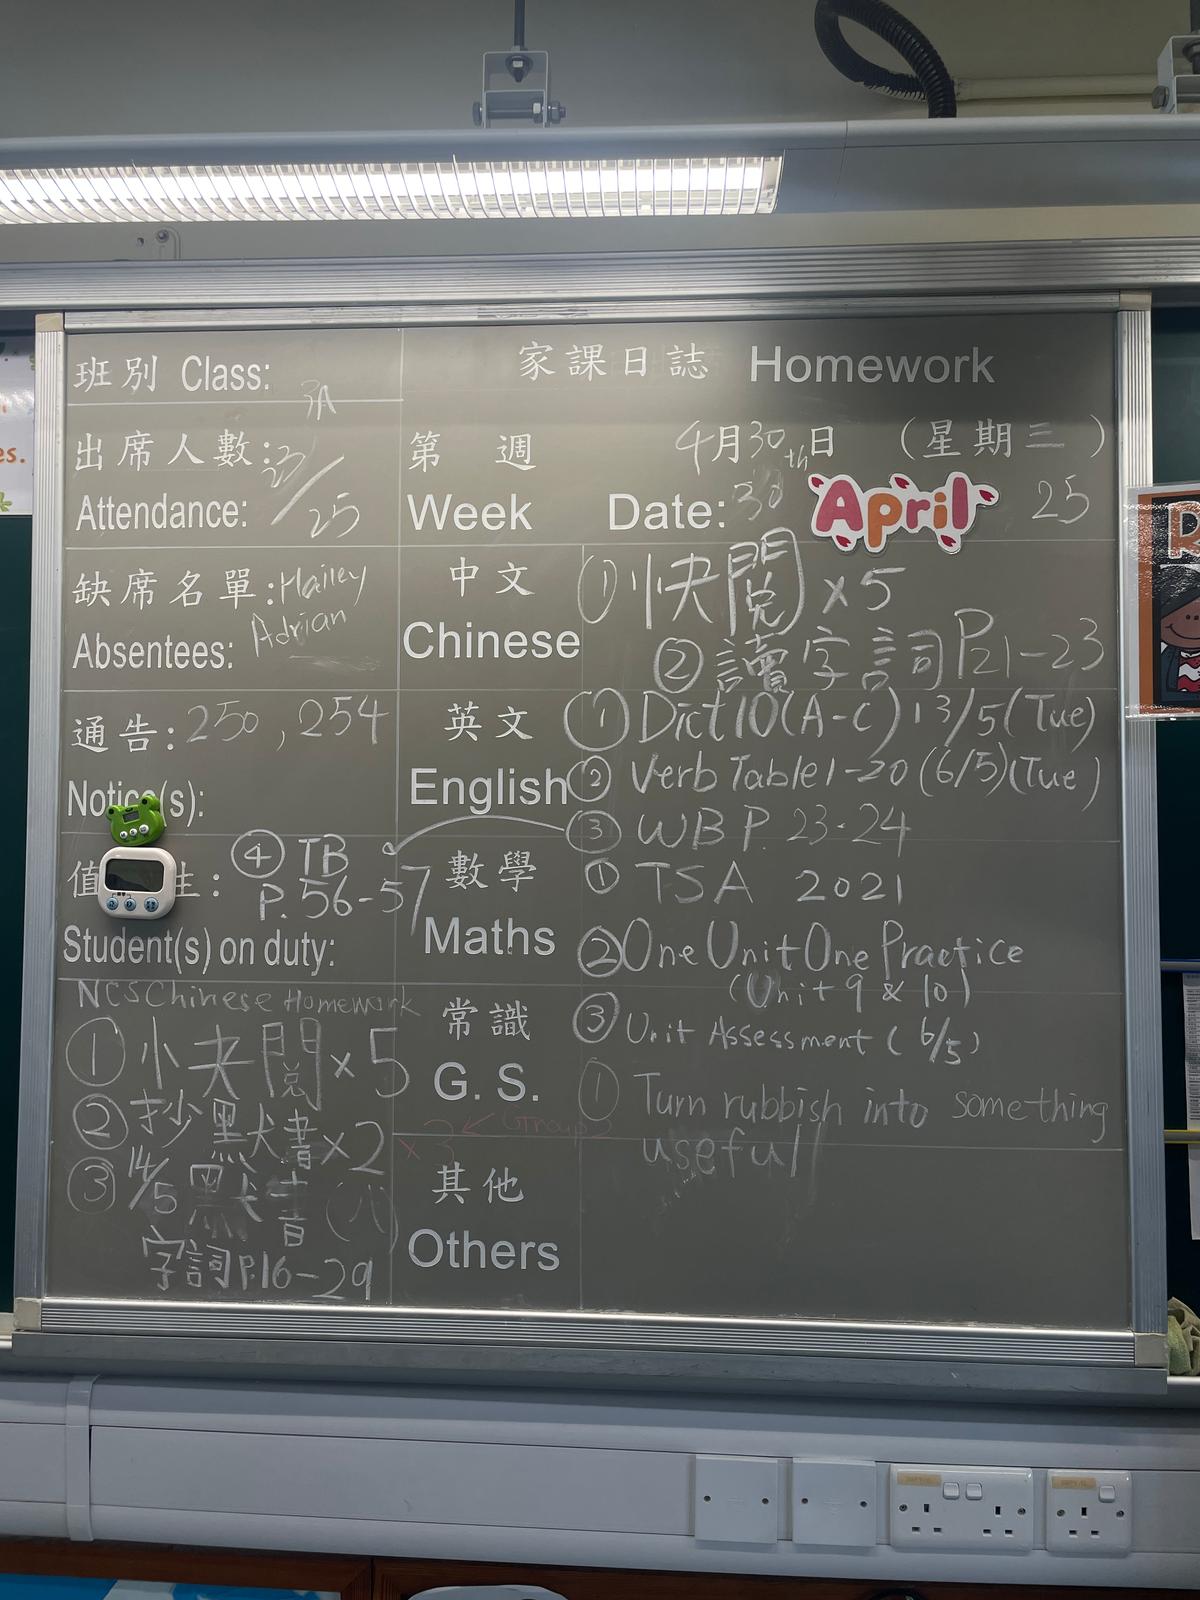 班別 Class: 3A
家課日誌 Homework
出席人數: 23/25
Attendance:
第 週 4月30th日 (星期三)
Week Date: 30 April 25
缺席名單: Hailey
Absentees: Adrian
通告: 250, 254
Notice(s):
值 生:
Student(s) on duty:
中文
Chinese
① 快閱 x5
② 讀字詞 P21-23
英文
English
① Dict 10 (A-C) 13/5 (Tue)
② Verb Table 1-20 (6/5) (Tue)
③ WB P. 23-24
④ TB
P. 56-57
數學
Maths
① TSA 2021
② One Unit One Practice
(Unit 9 & 10)
③ Unit Assessment (6/5)
常識
G. S.
① Turn rubbish into something
useful
其他
Others
NCS Chinese Homework
① 小夫閱 x 5
② 抄默書 x2
x3 ← Group 2
③ 14/5 默書 (八)
字詞 P.16-29
es.
R